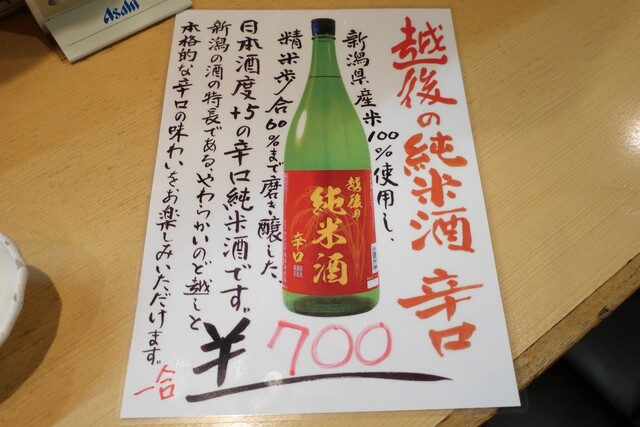 越後の純米酒 辛口
新潟県産米100%使用し、
精米歩合60%まで磨き醸した、
日本酒度+5の辛口純米酒です。
新潟の酒の特長である、やわらかいのど越しと
本格的な辛口の味わいをお楽しみいただけます。
一合
¥700
越後の
純米酒
辛口
Asahi